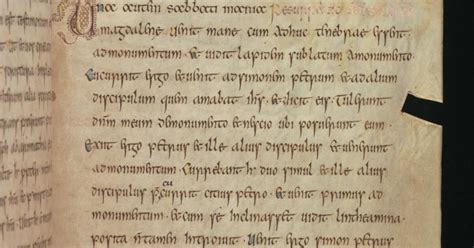 sabbati maria
magdalene uenit mane cum adhuc tenebrae essent
ad monumentum et uidit lapidem sublatum a monumento
Cucurrit ergo et uenit ad simonem petrum et ad alium
discipulum quem amabat ihs et dicit eis Tulerunt
dnm meum de monumento et nescio ubi posuerunt eum
Exiit ergo petrus et ille alius discipulus et uenerunt
ad monumentum Currebant hr duo simul et ille alius
discipulus precucurrit citius petro et uenit primus ad
monumentum et cum se inclinasset uidit linteamina
posita n tamen introiuit Uenit ergo simon petrus